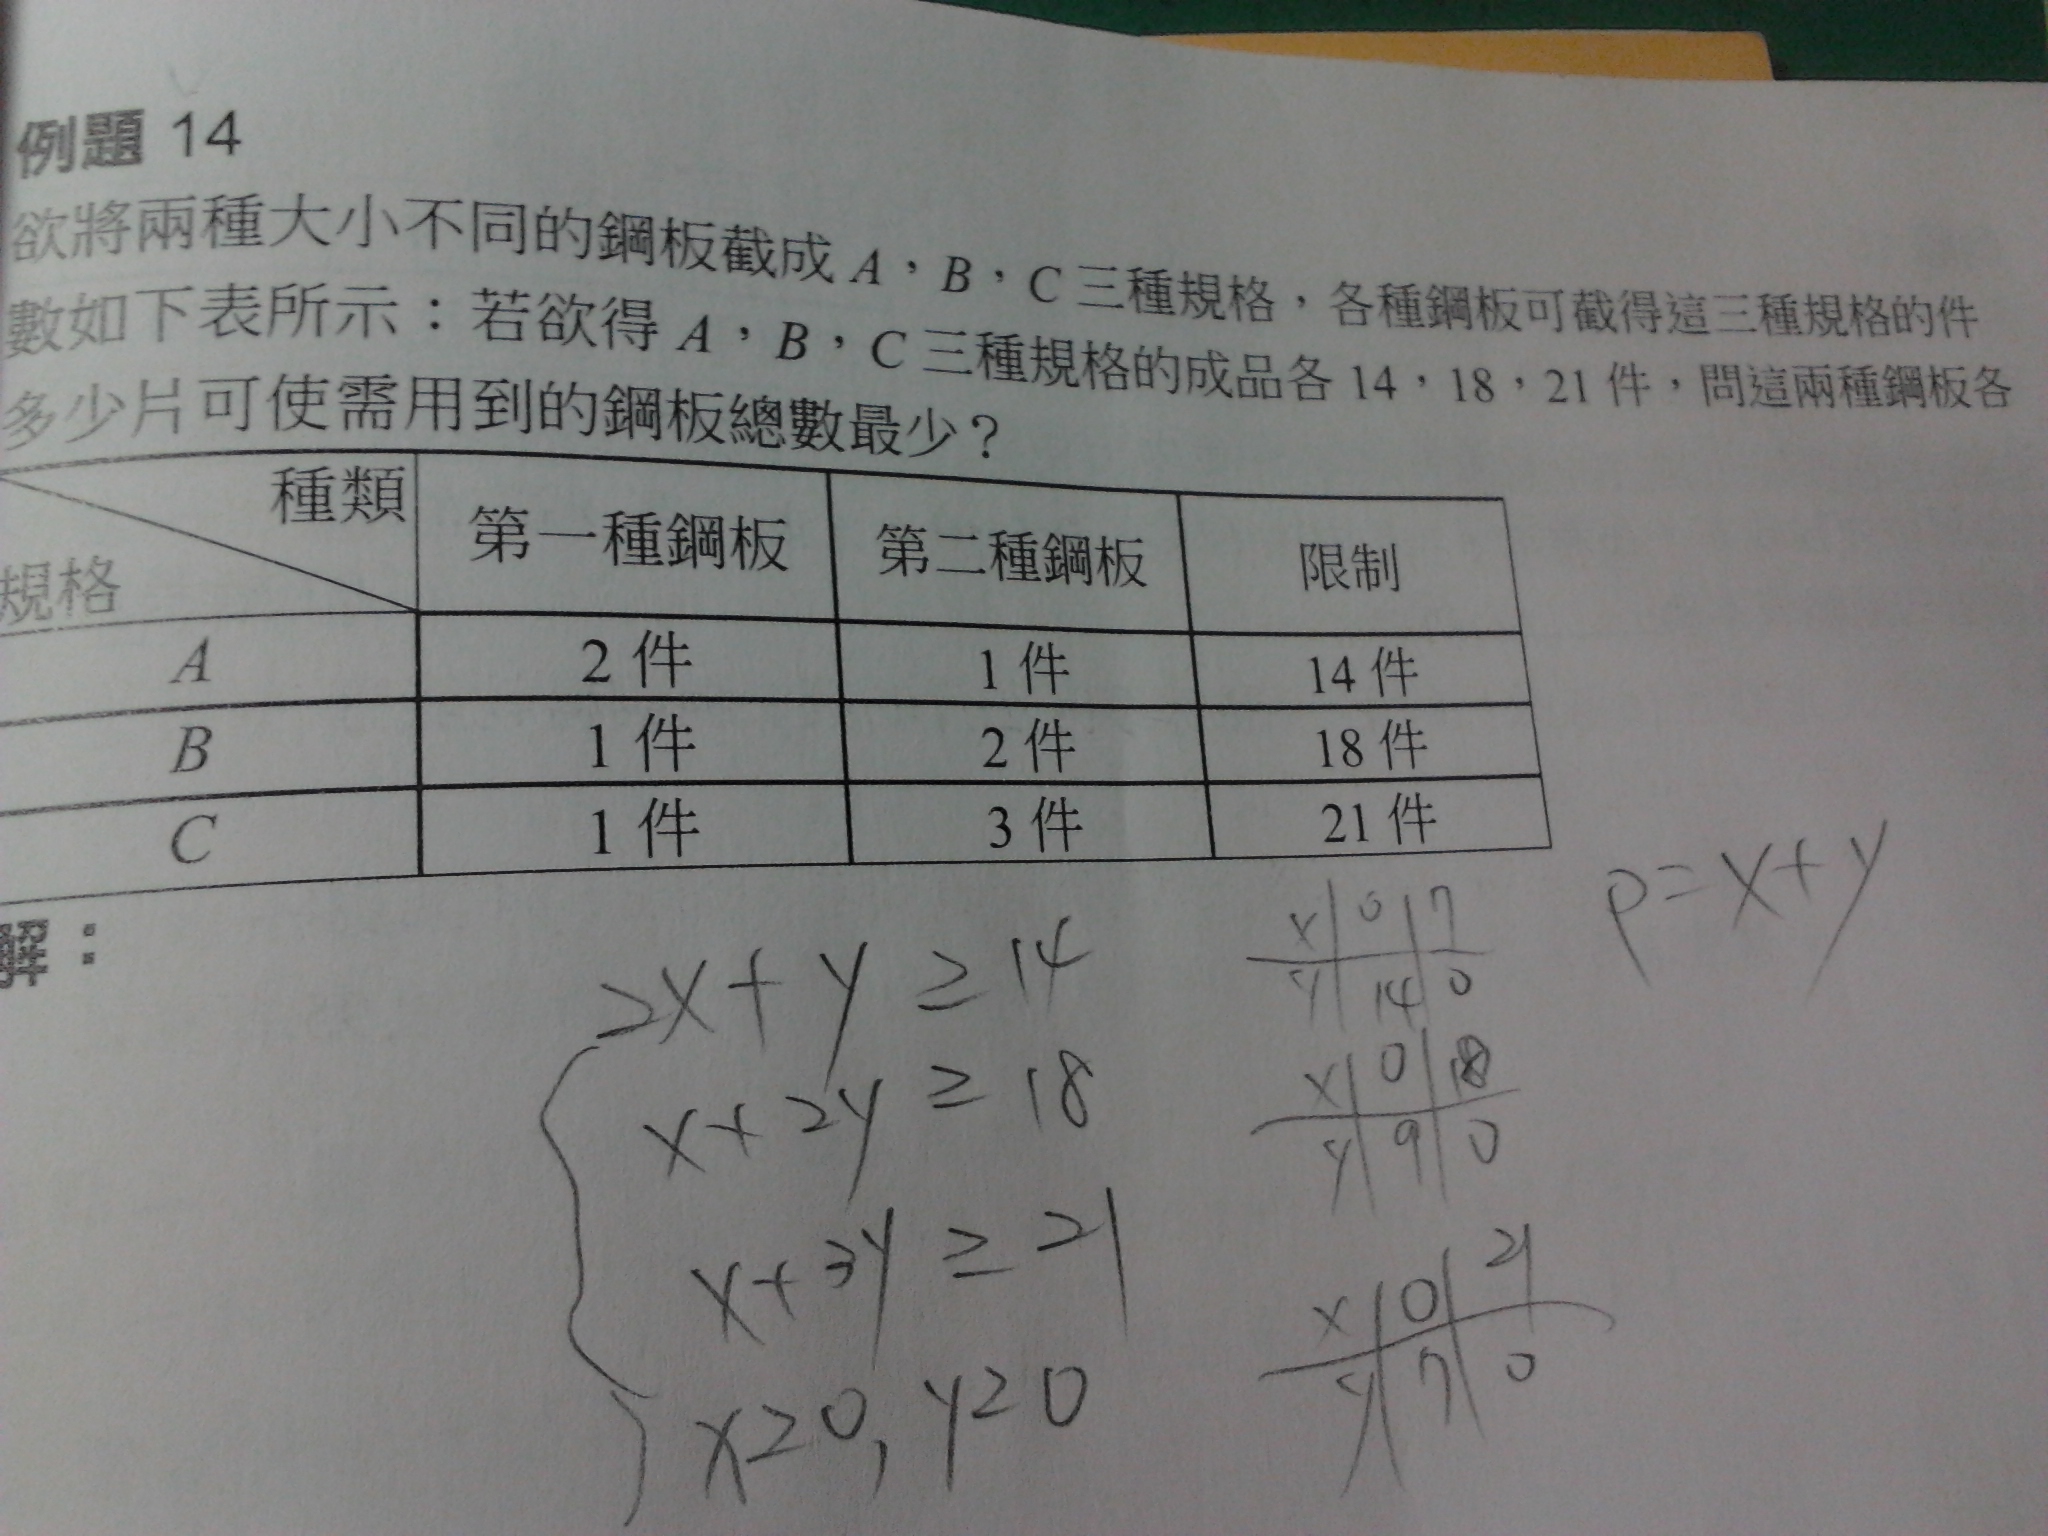 例題 14
欲將兩種大小不同的鋼板截成 A,B,C 三種規格,各種鋼板可截得這三種規格的件
數如下表所示:若欲得 A,B,C 三種規格的成品各 14,18,21 件,問這兩種鋼板各
多少片可使需用到的鋼板總數最少?
種類 規格 第一種鋼板 第二種鋼板 限制
A 2 件 1 件 14 件
B 1 件 2 件 18 件
C 1 件 3 件 21 件
解:
2x+y≥14
x+2y≥18
x+3y≥21
x≥0, y≥0
x 0 7
y 14 0
x 0 18
y 9 0
x 0 21
y 7 0
P=x+y